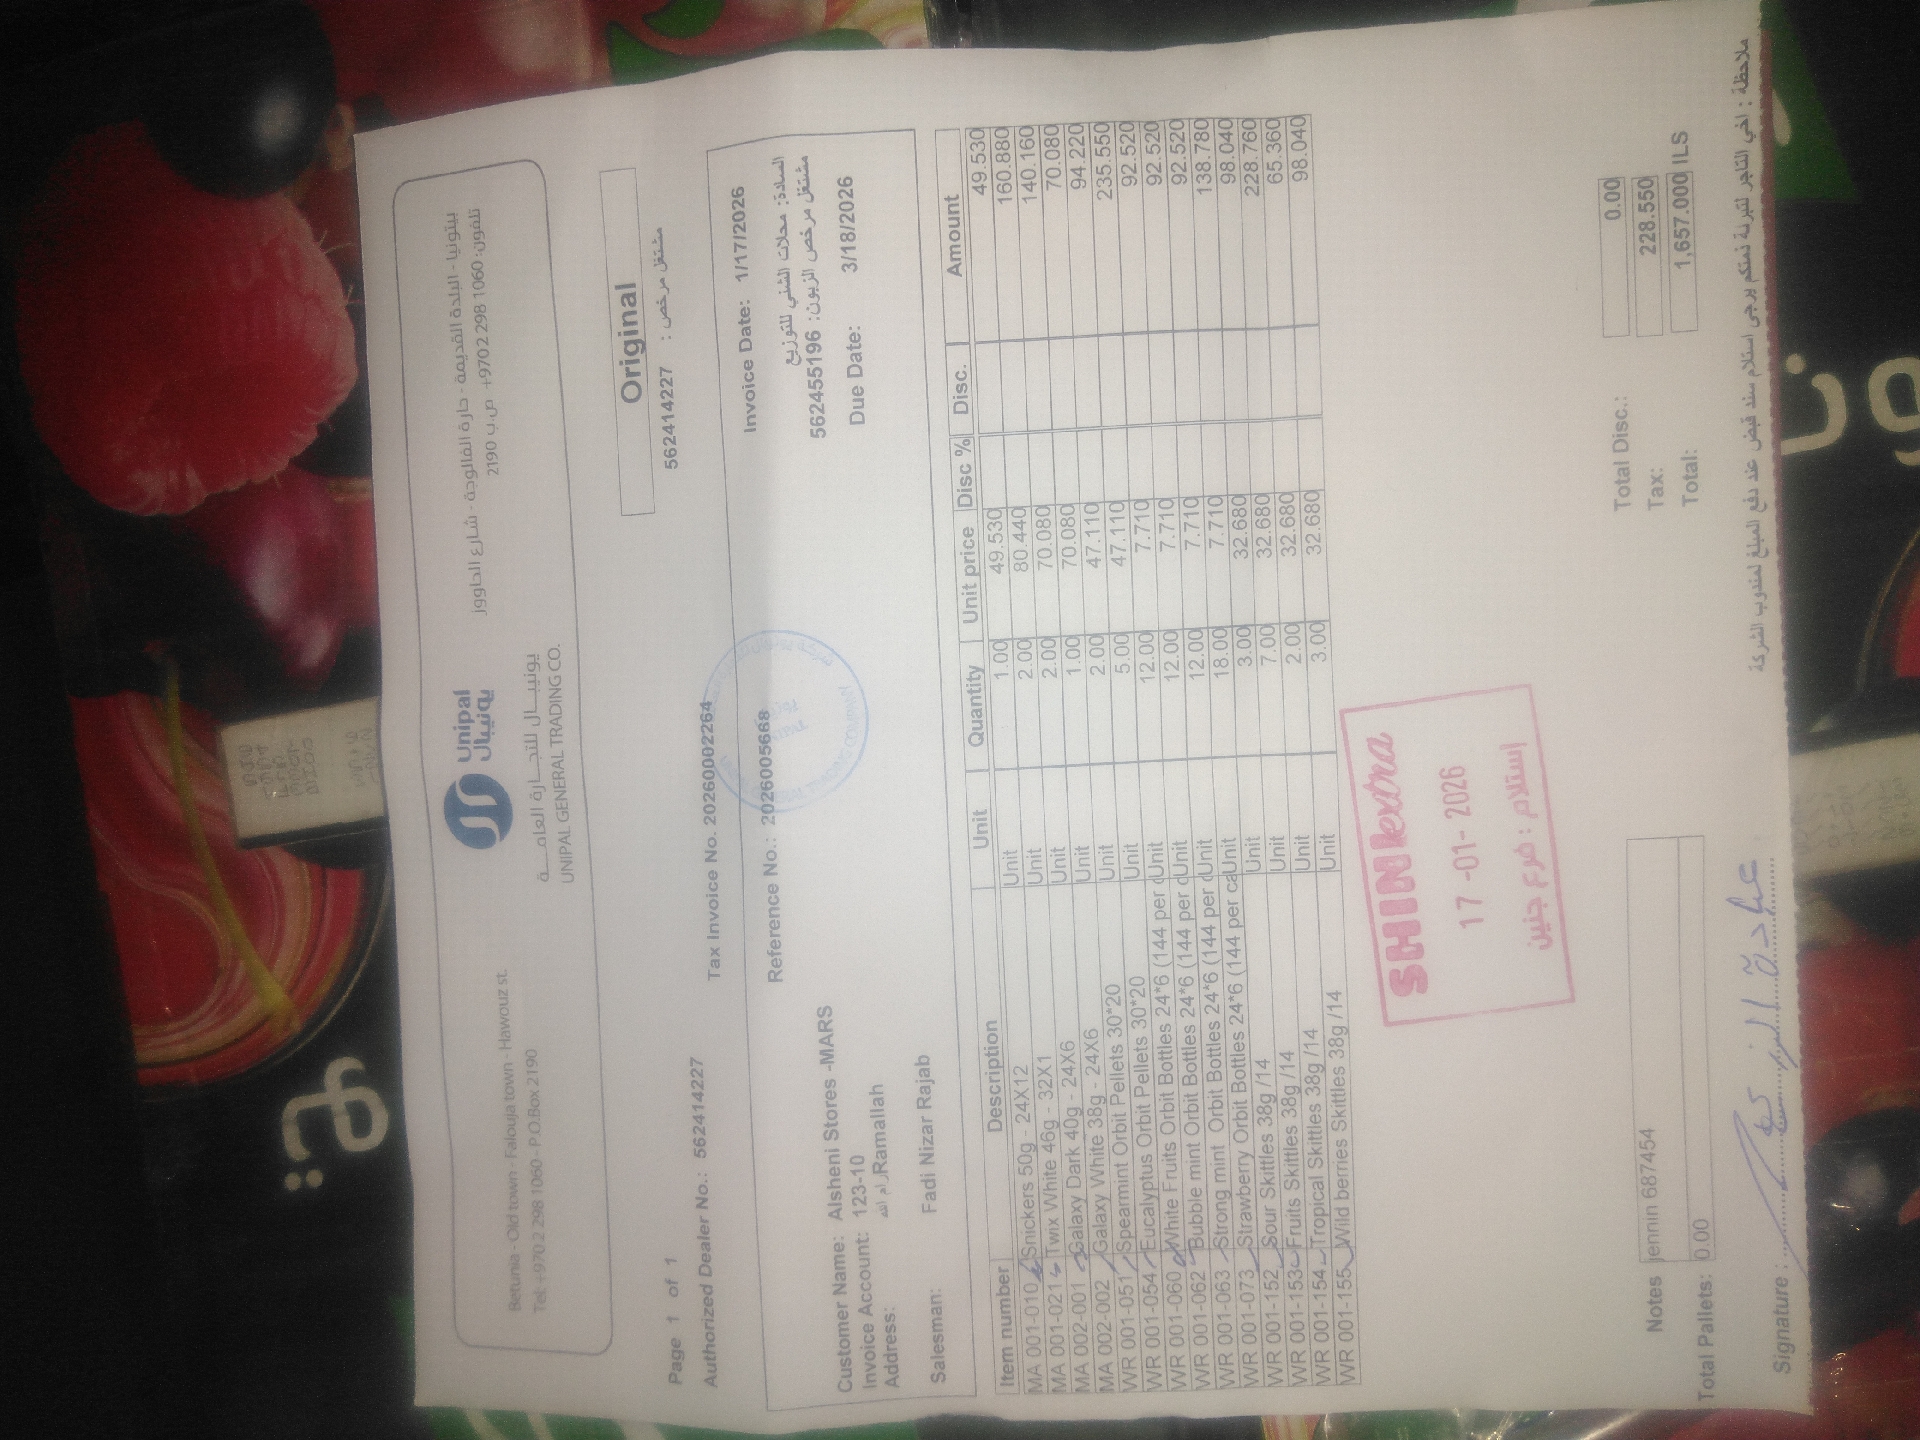 Unipal
يونيبال
يونيبـــال للتجـــارة العامـــة
UNIPAL GENERAL TRADING CO.
Betunia - Old town - Falouja town - Hawouz st.
Tel: +970 2 298 1060 - P.O.Box 2190
بيتونيا - البلدة القديمة - حارة الفالوجة - شارع الحاووز
تلفون: 1060 298 2 970+ ص.ب 2190
Original
Page 1 of 1
562414227 : مشتغل مرخص
Authorized Dealer No.: 562414227
Tax Invoice No. 20260002264
Invoice Date: 1/17/2026
Reference No.: 2026005668
السادة: محلات الشني للتوزيع
Customer Name: Alsheni Stores -MARS
مشتغل مرخص الزبون: 562455196
Invoice Account: 123-10
Due Date: 3/18/2026
Address: رام الله Ramallah
Salesman: Fadi Nizar Rajab
Item number Description Unit Quantity Unit price Disc % Disc. Amount
MA 001-010 Snickers 50g - 24X12 Unit 1.00 49.530 49.530
MA 001-021 Twix White 46g - 32X1 Unit 2.00 80.440 160.880
MA 002-001 Galaxy Dark 40g - 24X6 Unit 2.00 70.080 140.160
MA 002-002 Galaxy White 38g - 24X6 Unit 1.00 70.080 70.080
WR 001-051 Spearmint Orbit Pellets 30*20 Unit 2.00 47.110 94.220
WR 001-054 Eucalyptus Orbit Pellets 30*20 Unit 5.00 47.110 235.550
WR 001-060 White Fruits Orbit Bottles 24*6 (144 per c Unit 12.00 7.710 92.520
WR 001-062 Bubble mint Orbit Bottles 24*6 (144 per c Unit 12.00 7.710 92.520
WR 001-063 Strong mint Orbit Bottles 24*6 (144 per c Unit 12.00 7.710 92.520
WR 001-073 Strawberry Orbit Bottles 24*6 (144 per ca Unit 18.00 7.710 138.780
WR 001-152 Sour Skittles 38g /14 Unit 3.00 32.680 98.040
WR 001-153 Fruits Skittles 38g /14 Unit 7.00 32.680 228.760
WR 001-154 Tropical Skittles 38g /14 Unit 2.00 32.680 65.360
WR 001-155 Wild berries Skittles 38g /14 Unit 3.00 32.680 98.040
SHINI extra
17 -01- 2026
إستلام : فرع جنين
Notes jenin 687454
Total Pallets: 0.00
Total Disc.: 0.00
Tax: 228.550
Total: 1,657.000 ILS
Signature :
ملاحظة : اخي التاجر لتبرئة ذمتكم يرجى استلام سند قبض عند دفع المبلغ لمندوب الشركة